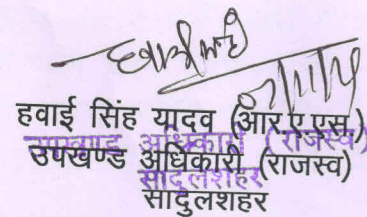 हवाई सिंह यादव (आर.ए.एस.)
उपखण्ड अधिकारी (राजस्व)
उपखण्ड अधिकारी (राजस्व)
सादुलशहर
सादुलशहर